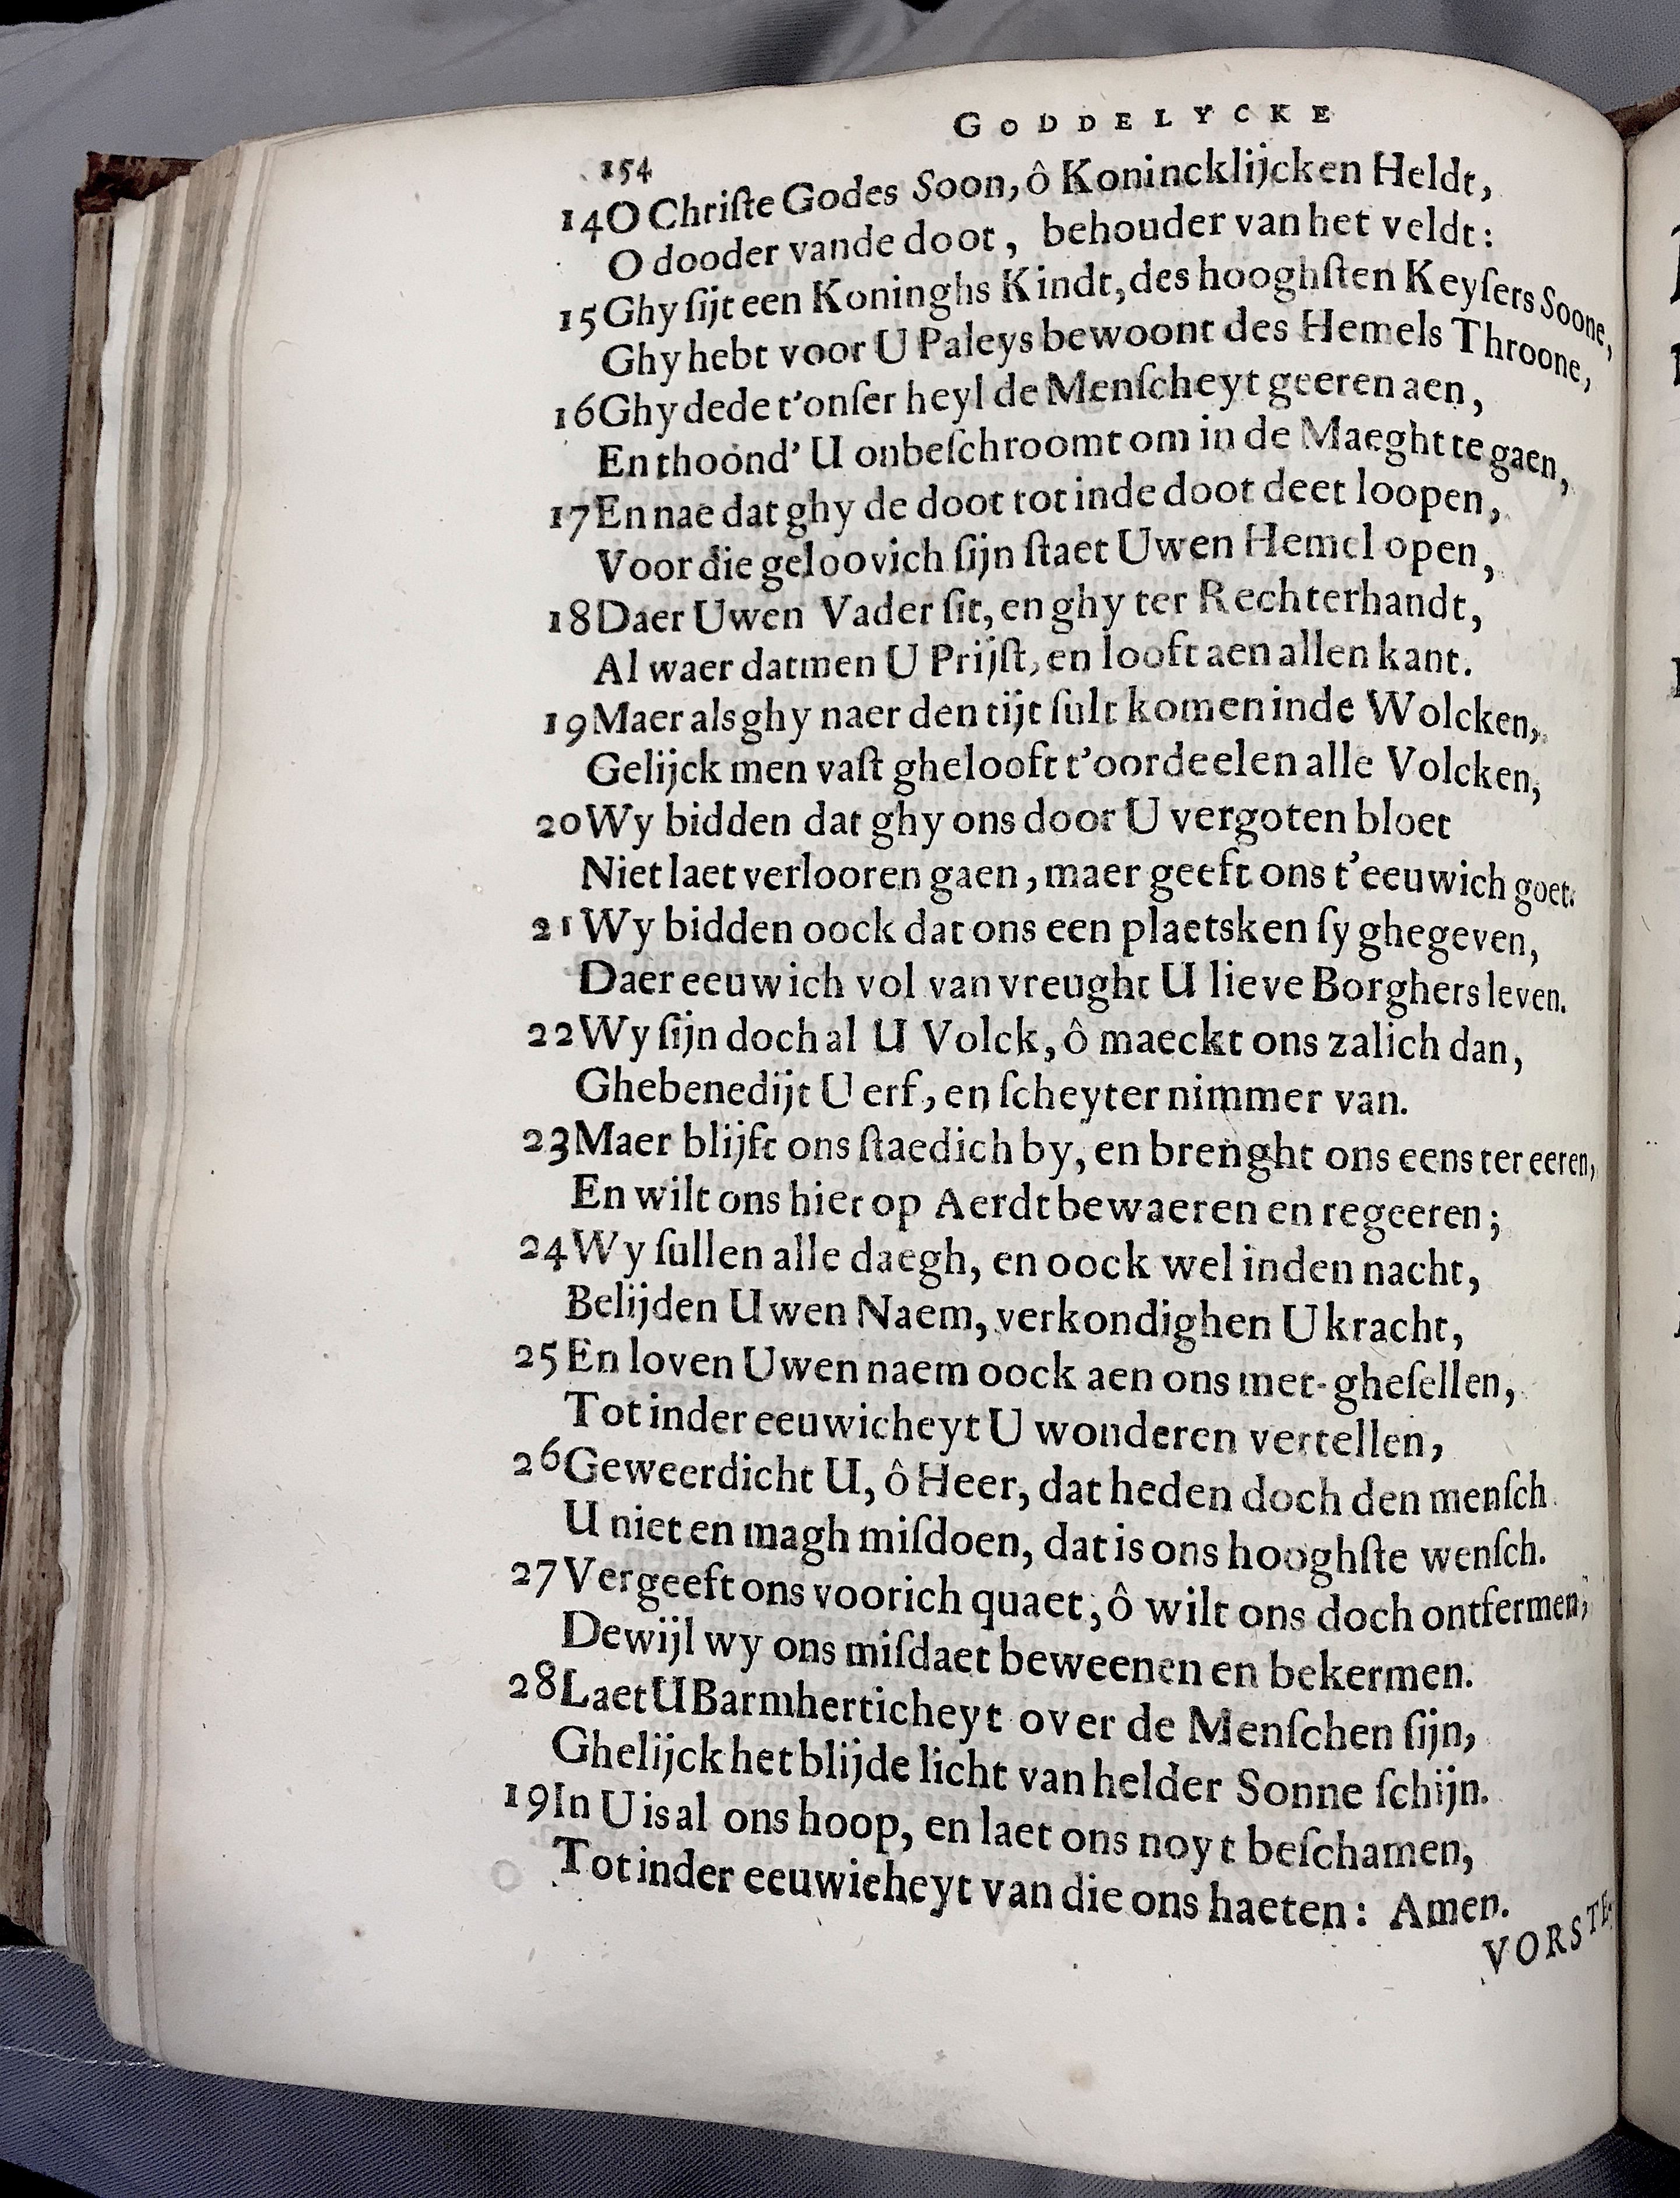 GODDELYCKE
154
14 O Chriſte Godes Soon, ô Konincklijcken Heldt,
O dooder vande doot, behouder van het veldt:
15 Ghy ſijt een Koninghs Kindt, des hooghſten Keyſers Soone,
Ghy hebt voor U Paleys bewoont des Hemels Throone,
16 Ghy dede t'onſer heyl de Menſcheyt geeren aen,
En thoond' U onbeſchroomt om in de Maeght te gaen,
17 En nae dat ghy de doot tot inde doot deet loopen,
Voor die geloovich ſijn ſtaet Uwen Hemel open,
18 Daer Uwen Vader ſit, en ghy ter Rechterhandt,
Al waer datmen U Prijſt, en looft aen allen kant.
19 Maer als ghy naer den tijt ſult komen inde Wolcken,
Gelijck men vaſt ghelooft t'oordeelen alle Volcken,
20 Wy bidden dat ghy ons door U vergoten bloet
Niet laet verlooren gaen, maer geeft ons t'eeuwich goet.
21 Wy bidden oock dat ons een plaetsken ſy ghegeven,
Daer eeuwich vol van vreught U lieve Borghers leven.
22 Wy ſijn doch al U Volck, ô maeckt ons zalich dan,
Ghebenedijt U erf, en ſcheyter nimmer van.
23 Maer blijft ons ſtaedich by, en brenght ons eens ter eeren,
En wilt ons hier op Aerdt bewaeren en regeeren;
24 Wy ſullen alle daegh, en oock wel inden nacht,
Belijden Uwen Naem, verkondighen U kracht,
25 En loven Uwen naem oock aen ons met-gheſellen,
Tot inder eeuwicheyt U wonderen vertellen,
26 Geweerdicht U, ô Heer, dat heden doch den menſch
U niet en magh miſdoen, dat is ons hooghſte wenſch.
27 Vergeeft ons voorich quaet, ô wilt ons doch ontfermen,
Dewijl wy ons miſdaet beweenen en bekermen.
28 Laet U Barmherticheyt over de Menſchen ſijn,
Ghelijck het blijde licht van helder Sonne ſchijn.
19 In U is al ons hoop, en laet ons noyt beſchamen,
Tot inder eeuwicheyt van die ons haeten: Amen.
VORSTE-